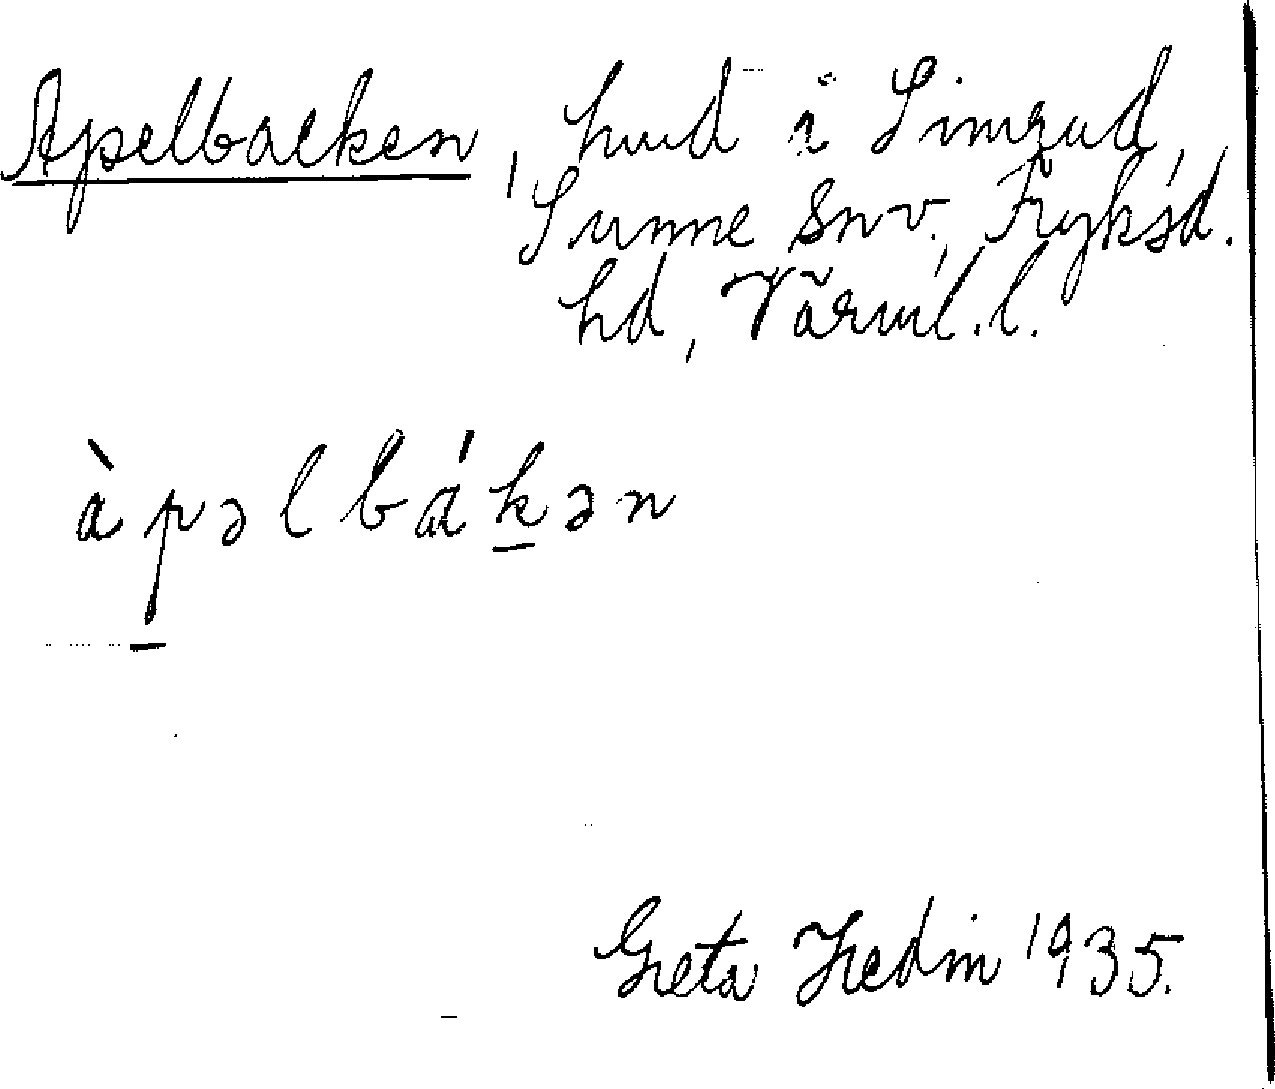 Apelbacken, hmd i Simrud,
Sunne snv., Fryksd.
hd, Värml. l.
àpəlbákən
Greta Hedin 1935.